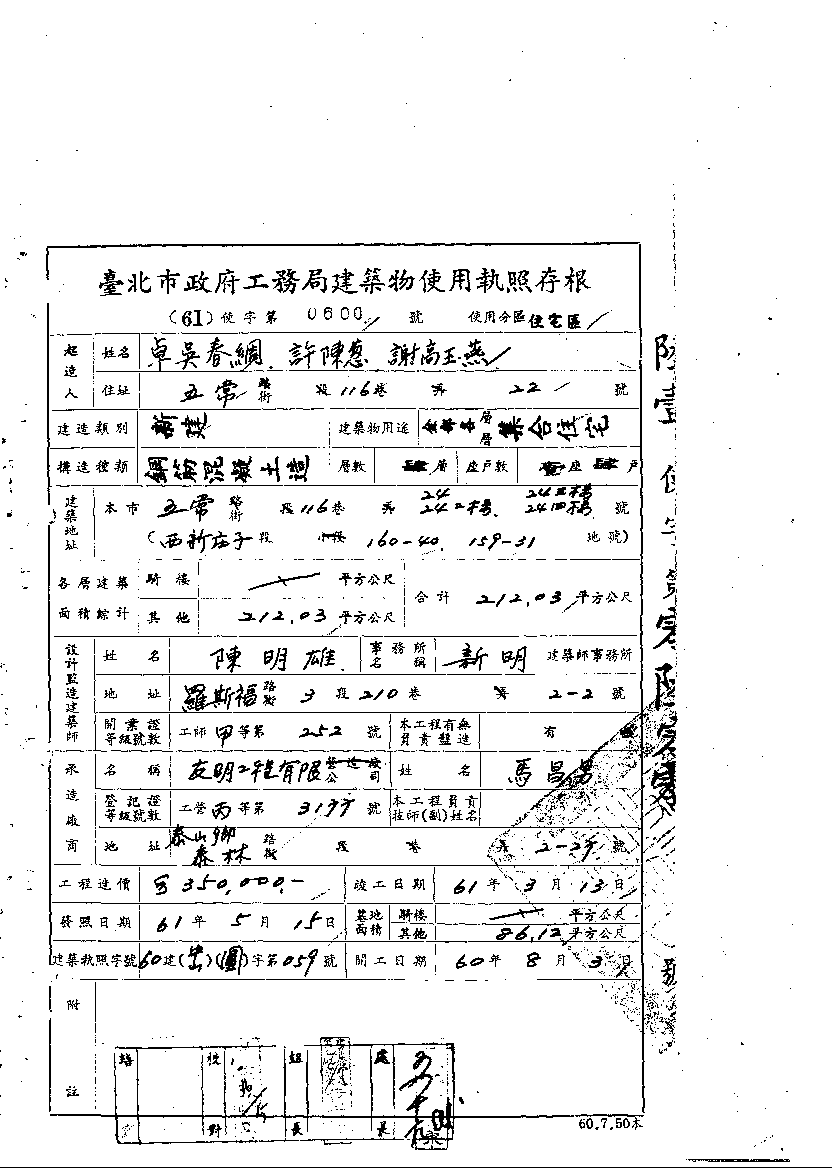 臺北市政府工務局建築物使用執照存根
(61)使字第 0600 號 使用分區 住宅區
起造人 姓名 卓吳春綢、許陳葱 謝高玉燕
住址 五常 路街 段 116 巷 弄 22 號
建造類別 新建 建築物用途 層層 集合住宅
構造種類 鋼筋混凝土造 層數 肆層 座戶數 壹座 肆戶
建築地址 本市 五常 路街 段 116 巷 弄 24 24三樓 24二樓、24四樓 號
(西新庄子段 小段 160-40、159-31 地號)
各層建築面積綜計 騎樓 平方公尺 合計 212.03 平方公尺
其他 212.03 平方公尺
設計監造建築師 姓名 陳明雄 事務所名稱 新明 建築師事務所
地址 羅斯福 路街 3 段 210 巷 弄 2-2 號
開業證等級號數 工師 甲 等第 252 號 本工程有無負責監造 有
承造廠商 名稱 友明工程有限 營造廠公司 姓名 馬昌
登記證等級號數 工營 丙 等第 號 本工程負責技師(副)姓名
地址 泰山鄉 泰林 路街 段 巷 弄 號
工程造價 350,000.- 竣工日期 61年3月13日
發照日期 61年5月15日 基地面積 騎樓 平方公尺
其他 86.12 平方公尺
建築執照字號 60建( )( )字第 059 號 開工日期 60年8月3日
附註
校對 組長 處長
60.7.50本
陸壹 使字第零陸零零 號